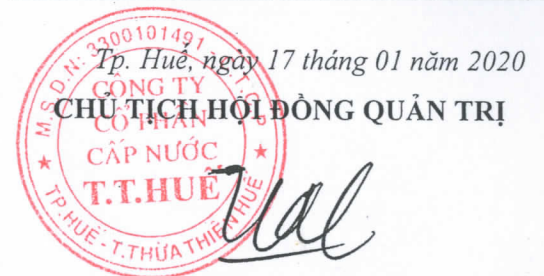 Tp. Huế, ngày 17 tháng 01 năm 2020
CHỦ TỊCH HỘI ĐỒNG QUẢN TRỊ
M.S.D.N: 3300101491
CÔNG TY
CỔ PHẦN
CẤP NƯỚC
T.T.HUẾ
TP.HUẾ - T.THỪA THIÊN HUẾ